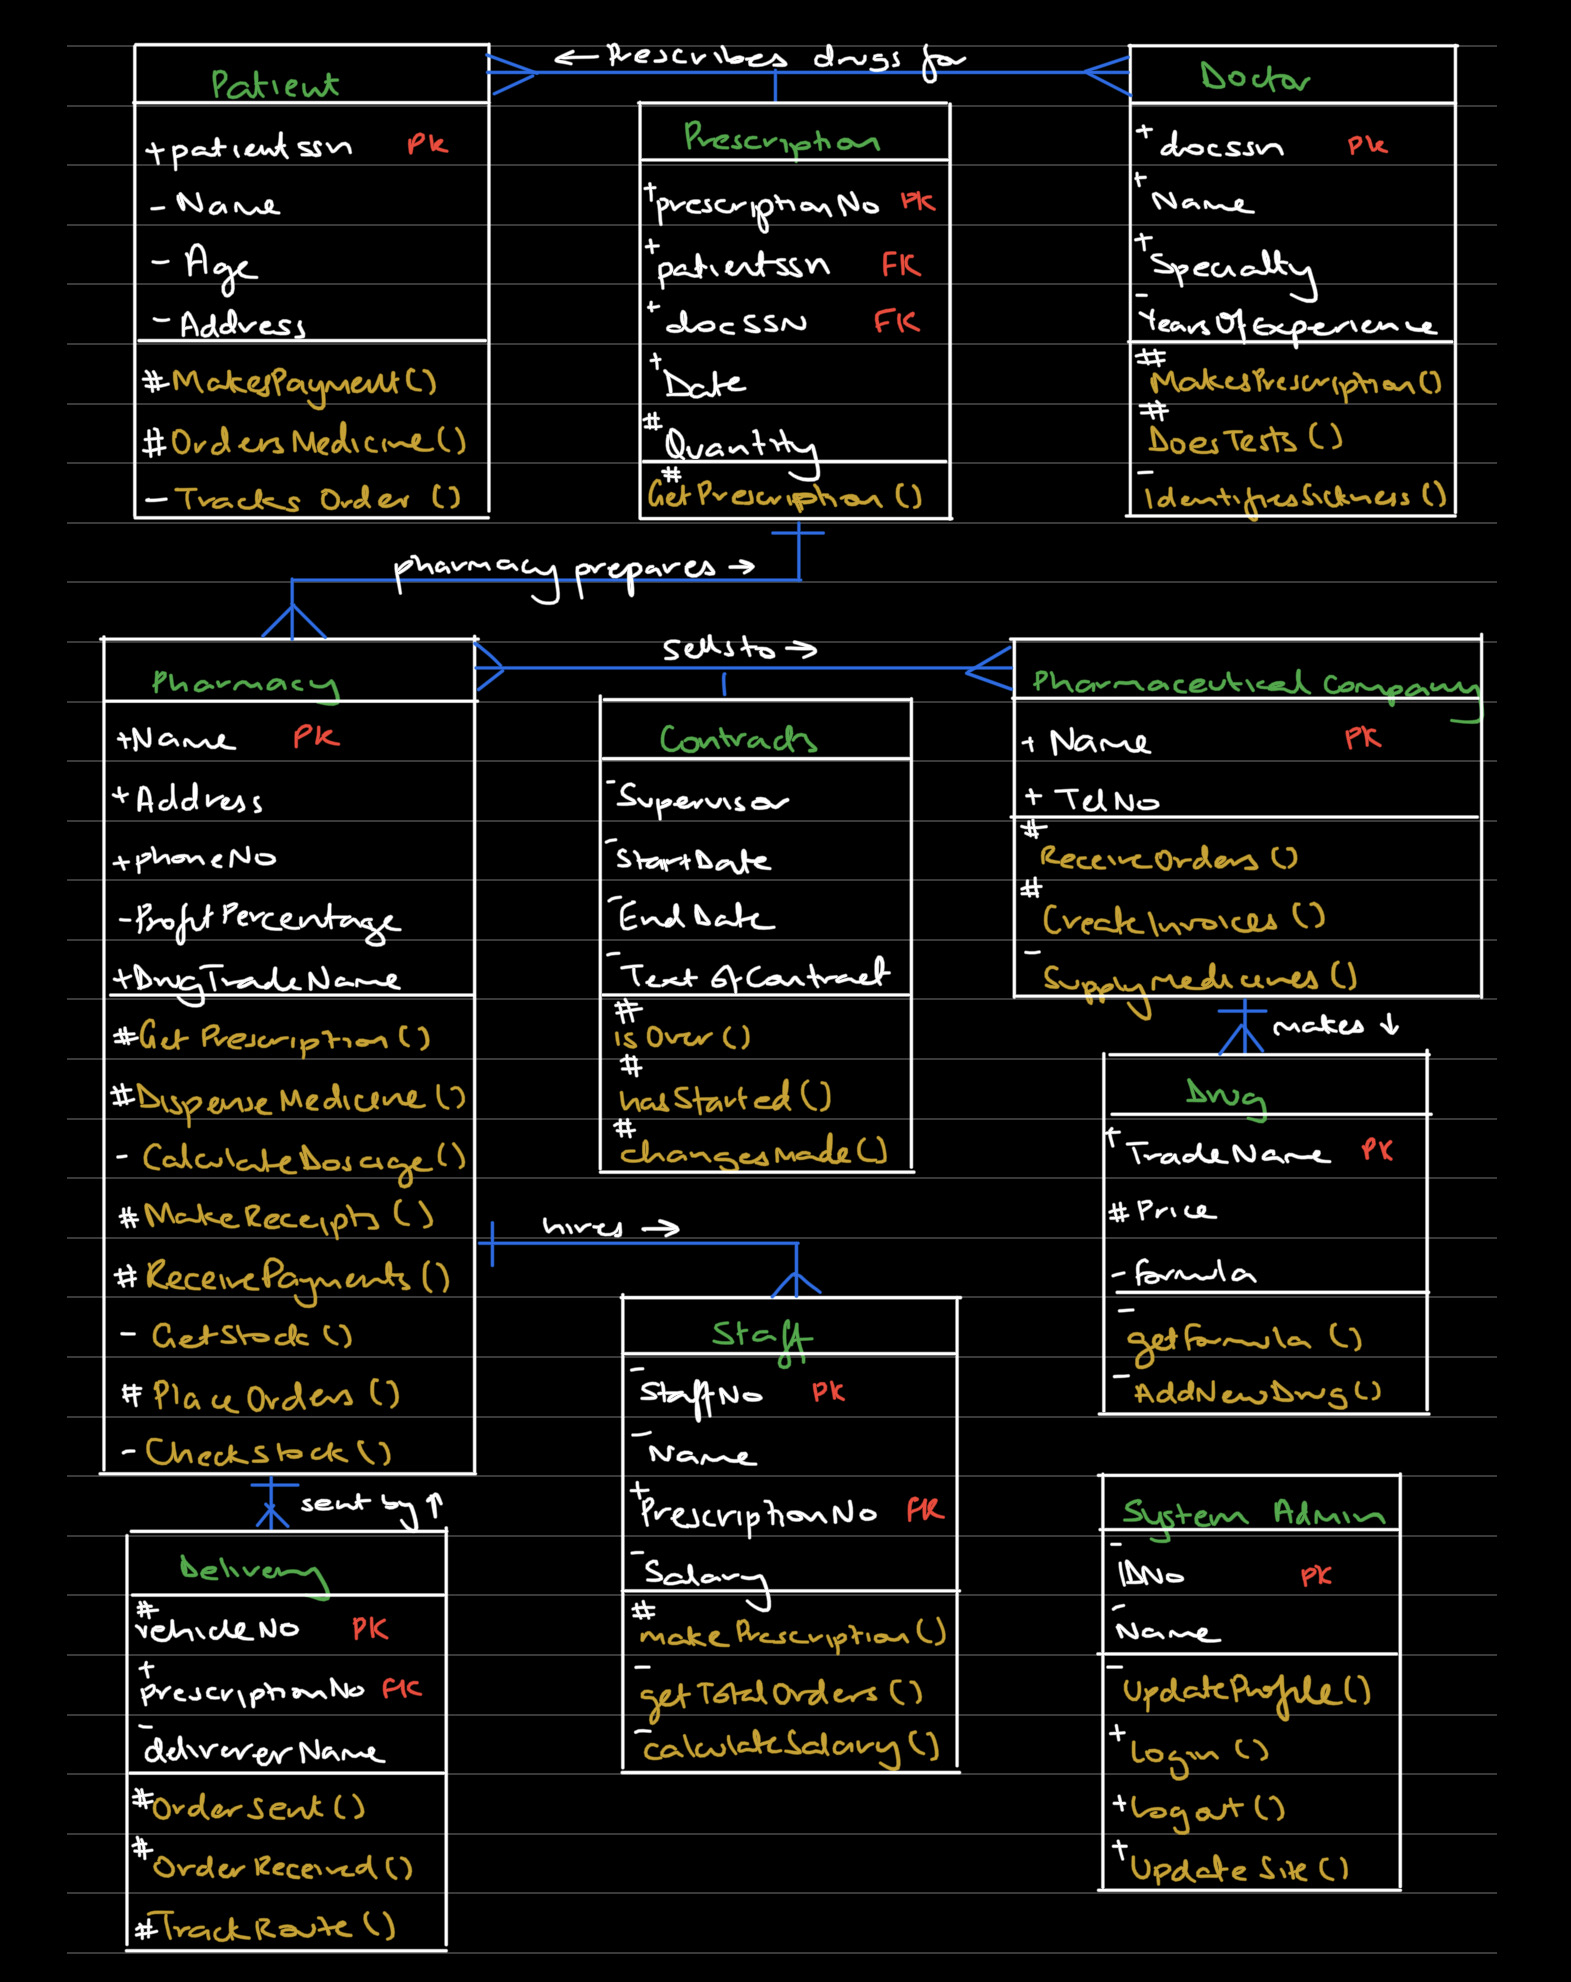 Patient
+patientssn PK
- Name
- Age
- Address
#MakesPayment()
#OrdersMedicine()
- Tracks Order ()
← Prescribes drugs for
Prescription
+prescriptionNo PK
+patientssn FK
+docSSN FK
+Date
#Quantity
#GetPrescription()
Doctor
+docssn PK
+Name
+Specialty
-YearsOfExperience
#MakesPrescription()
#DoesTests()
-IdentifiesSickness()
pharmacy prepares →
Pharmacy
+Name PK
+Address
+phoneNo
-ProfitPercentage
+DrugTradeName
#GetPrescription()
#DispenseMedicine()
- CalculateDosage()
#MakeReceipts()
#ReceivePayments()
- GetStock()
# PlaceOrders()
- CheckStock()
sellsto →
Contracts
-Supervisor
-StartDate
-EndDate
-Text Of Contract
#isOver()
#hasStarted()
#changesMade()
Pharmaceutical Company
+ Name PK
+ TelNo
#ReceiveOrders()
#CreateInvoices()
-SupplyMedicines()
makes ↓
Drug
+TradeName PK
#Price
-formula
-getFormula()
-AddNewDrug()
hires →
Staff
-StaffNo PK
-Name
+PrescriptionNo FK
-Salary
#makePrescription()
-getTotalOrders()
-calculateSalary()
sent by ↑
Delivery
#vehicleNo PK
+prescriptionNo FK
-delivererName
#OrderSent()
#OrderReceived()
#TrackRoute()
System Admin
-IDNo PK
-Name
-UpdateProfile()
+Login()
+Logout()
+UpdateSite()